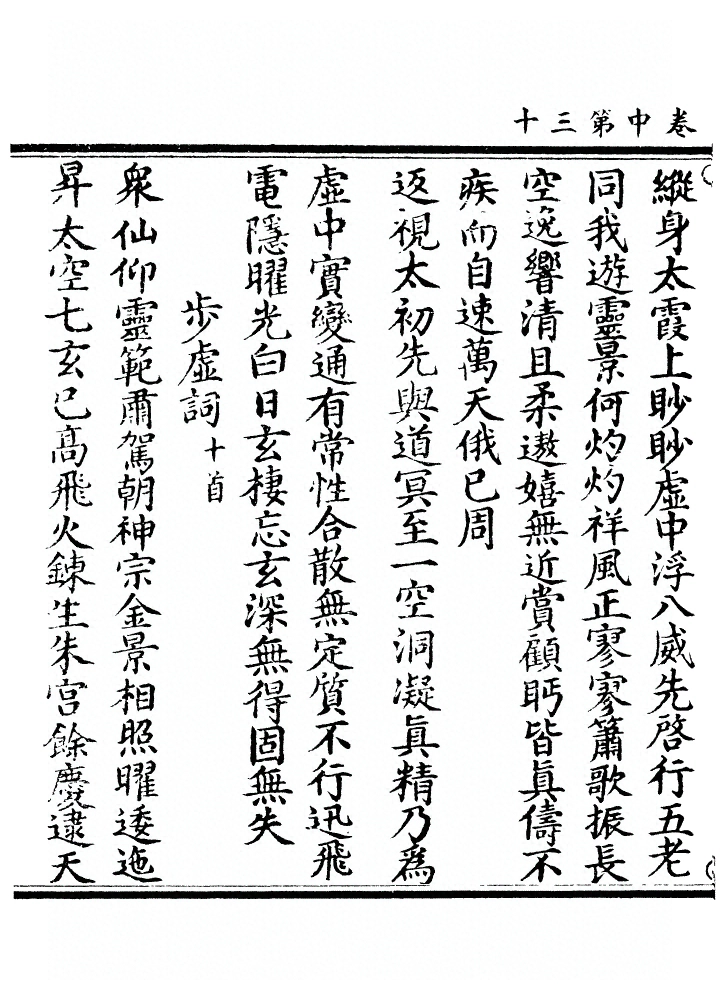 卷中第三十
縱身太霞上眇眇虛中浮八威先啓行五老
同我遊靈景何灼灼祥風正寥寥簫歌振長
空逸響清且柔遨嬉無近賞顧眄皆眞儔不
疾而自速萬天俄已周
返視太初先與道冥至一空洞凝眞精乃爲
虛中實變通有常性合散無定質不行迅飛
電隱曜光白日玄棲忘玄深無得固無失
步虛詞十首
衆仙仰靈範肅駕朝神宗金景相照曜逶迤
昇太空七玄已高飛火鍊生朱宮餘慶逮天